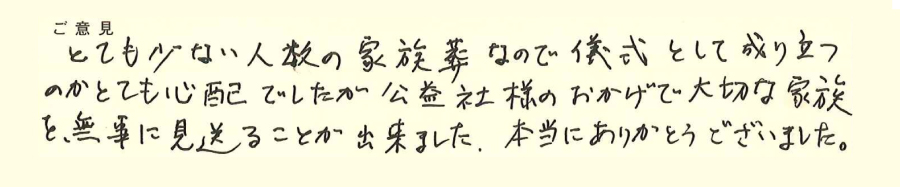 ご意見
とても少ない人数の家族葬なので儀式として成り立つ
のかとても心配でしたが公益社様のおかげで大切な家族
を、無事に見送ることが出来ました。本当にありがとうございました。